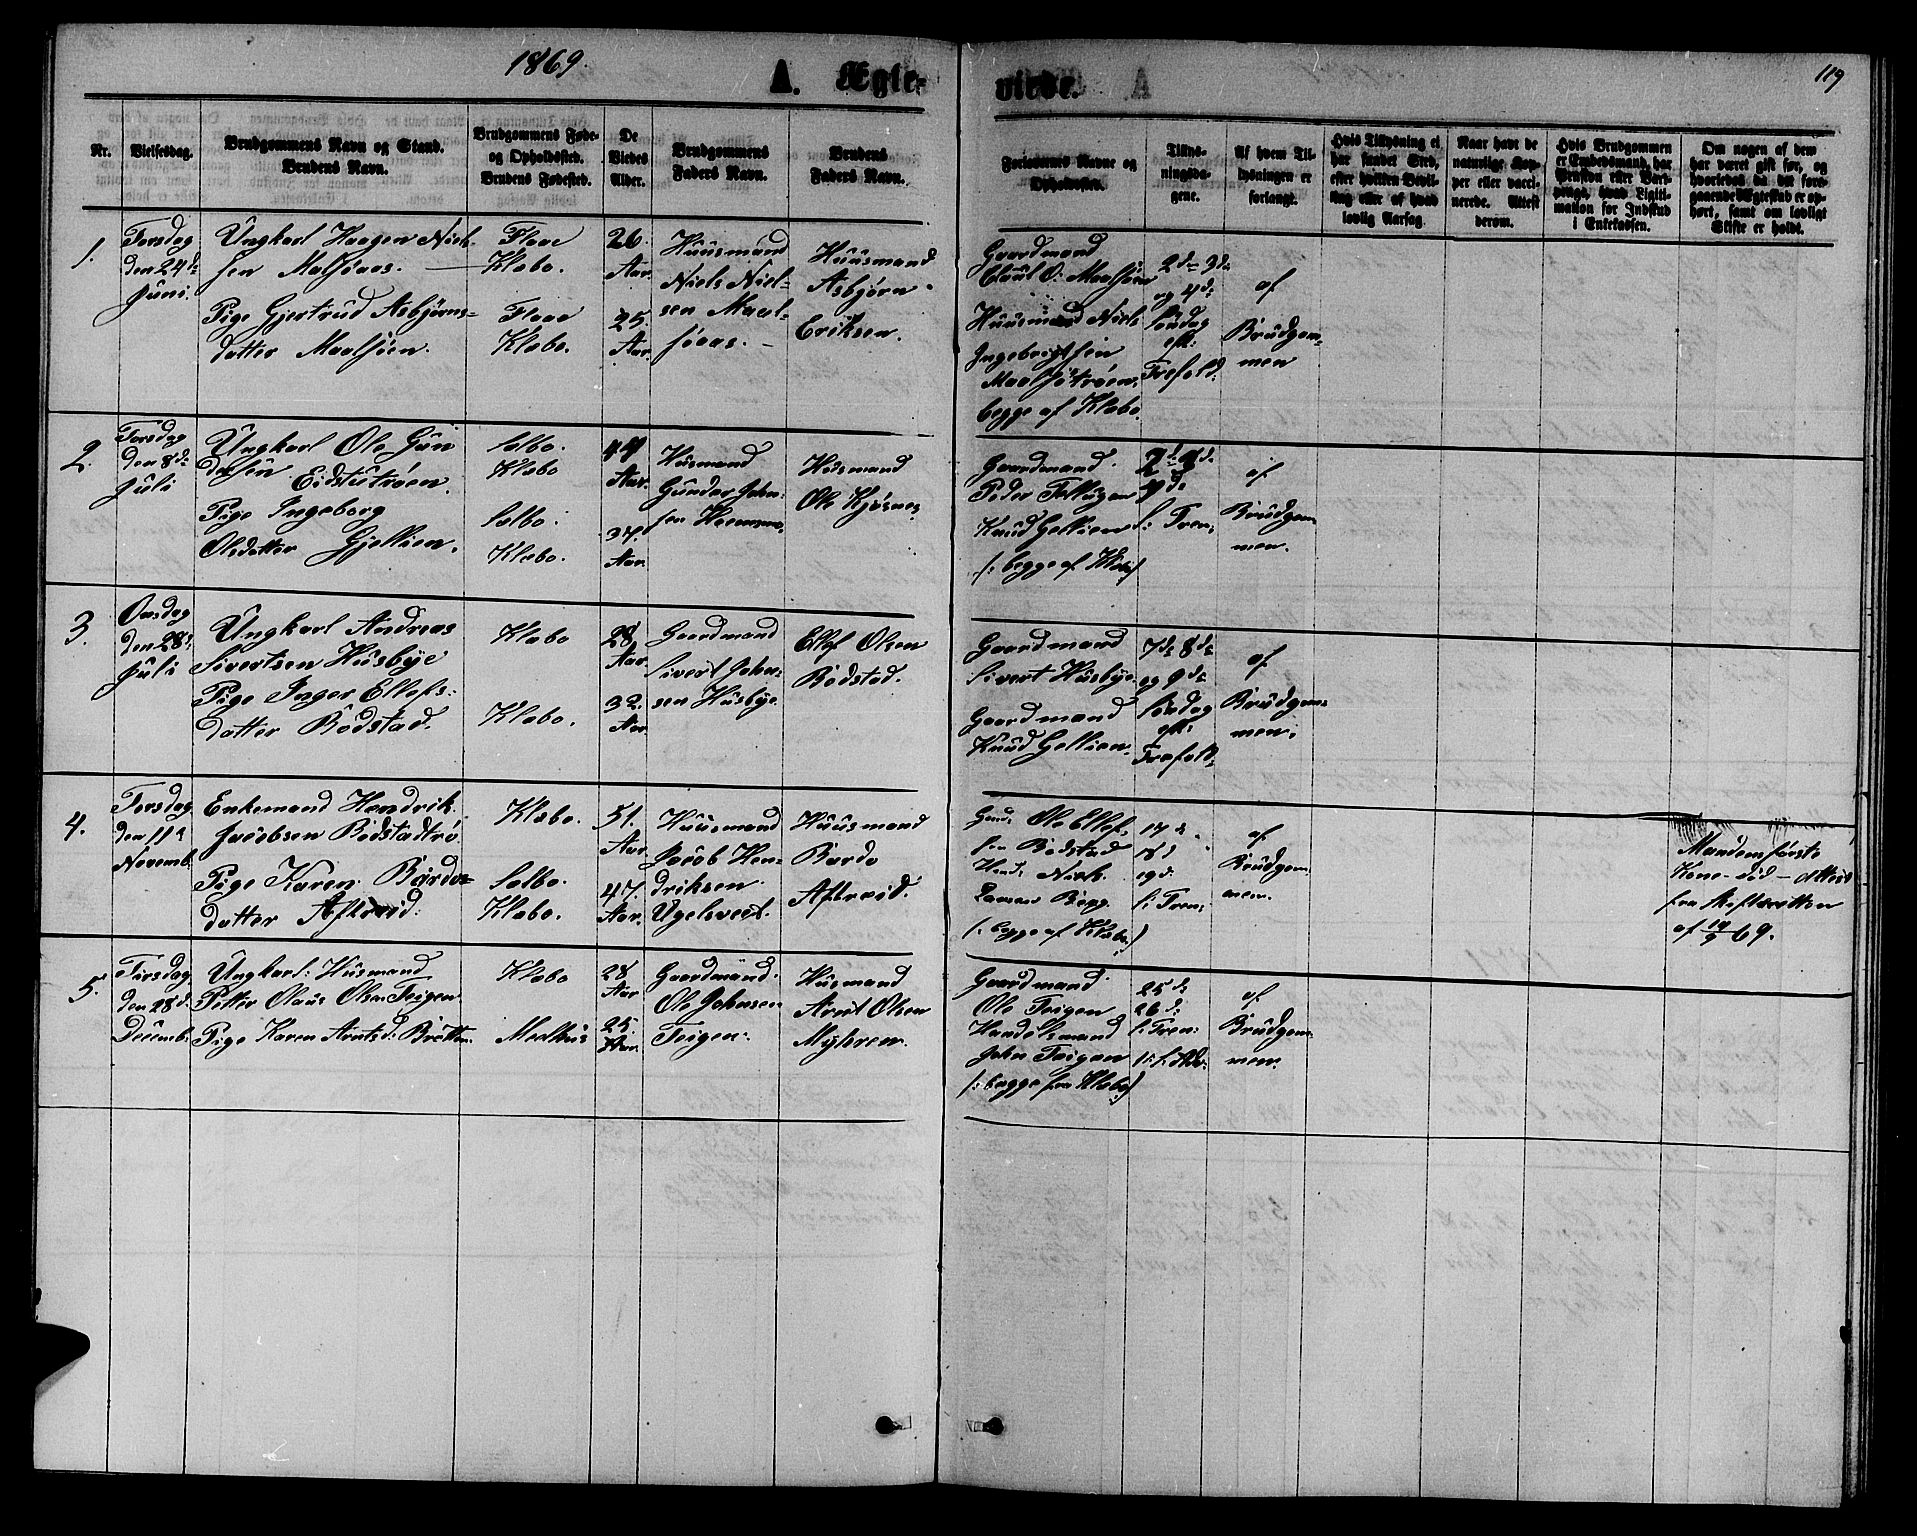 1869.
A. Ægte-
viede.
119
Nr.
Vielsesdag.
Brudgommens Navn og Stand.
Brudens Navn.
Brudgommens Føde-
og Opholdssted.
Brudens Fødested.
De
Viedes
Alder.
Brudgommens
Faders Navn.
Brudens
Faders Navn.
Forlovernes Navne og
Opholdssted.
Tillys-
ningsda-
gene.
Af hvem Til-
lysningen er
forlangt.
Hvis Tillysning ei
har fundet Sted,
efter hvilken Bevil-
ling eller af hvad
lovlig Aarsag.
Naar havt de
naturlige Kop-
per eller vacci-
nerede. Attest
derom.
Hvis Brudgommen
er Embedsmand, har
Pension eller Vart-
penge, hvad Ligiti-
mation for Indskud
i Enkekassen.
Om nogen af dem
har været gift før, og
hvorledes da det fore-
gaaende Ægteskab er op-
hørt, samt om lovligt
Skifte er holdt.
1.
Torsdag
den 24de
Juni.
Ungkarl Haagen Niel-
sen Malsjøaas.
Pige Gjertrud Asbjørns-
datter Maalsjøen.
Flaae
Klæbo.
Flaae
Klæbo.
26.
Aar.
25.
Aar.
Huusmand
Niels Niel-
sen Maal-
sjøaas.
Huusmand
Asbjørn
Eriksen.
Gaardmand
O. Maalsjøen
Huusmand Niels
Ingebrigtsen
Maalsjøtrøen,
begge af Klæbo.
2de 3de
og 4de
Søndag
eft:
Trefold:
af
Brudgom-
men
2.
Torsdag
den 8de
Juli
Ungkarl Ole Gun
dersen Eidstutrøen.
Pige Ingeborg
Olsdatter Gjellien.
Sælbo.
Klæbo
Sælbo.
Klæbo.
44
Aar.
37.
Aar.
Husmand
Gunder John-
sen
Husmand
Ole Kjøsnes
Gaardmand.
Peder
Knud Gellien
/: begge af Klæbo/
4de
S: Tren:
af
Brudgom
men.
3.
Onsdag
den 28de
Juli
Ungkarl Andreas
Sivertsen Husbye
Pige Inger Ellefs-
datter Bodstad.
Klæbo
Klæbo.
28
Aar.
32.
Aar
Gaardmand
Sivert John-
sen Husbye.
Ellef Olsen
Bodstad.
Gaardmand
Sivert Husbye.
Gaardmand
Knud Gellien.
7de 8de
og 9de
Søndag
eft:
Trefold:
af
Brudgom-
men.
4.
Torsdag
den 11te
Novemb.
Enkemand Hendrik
Jacobsen Bodstadtrø
Pige Karen Bårds-
datter Aftreid.
Klæbo.
Sælbo.
Klæbo.
51.
Aar.
47.
Aar.
Huusmand
Jacob Hen-
driksen
Ugelsvedt.
Huusmand
Bardo
Aftreid.
Ole Ellef-
sen Bodstad
/: begge af Klæbo/
17de
18d
19d.
S: Tren:
af
Brudgom-
men.
Mandens første
Kone død - Attest
fra Skifteretten
af 14/9 69.
5.
Tirsdag
den 28de
Decemb:
Ungkarl: Husmand
Petter Olaus Olsen Teigen
Pige Karen Arntsd: Bratten.
Klæbo
Melhus
28
Aar
25.
Aar.
Gaardmand:
Ole Johnsen
Teigen:
Husmand
Arnt Olsen
Myhren.
Gaardmand
Ole Teigen
Handelsmand
John Teigen
/: begge fra Klæbo/
25de
26de
S: Tren:
af
Brudgom-
men.